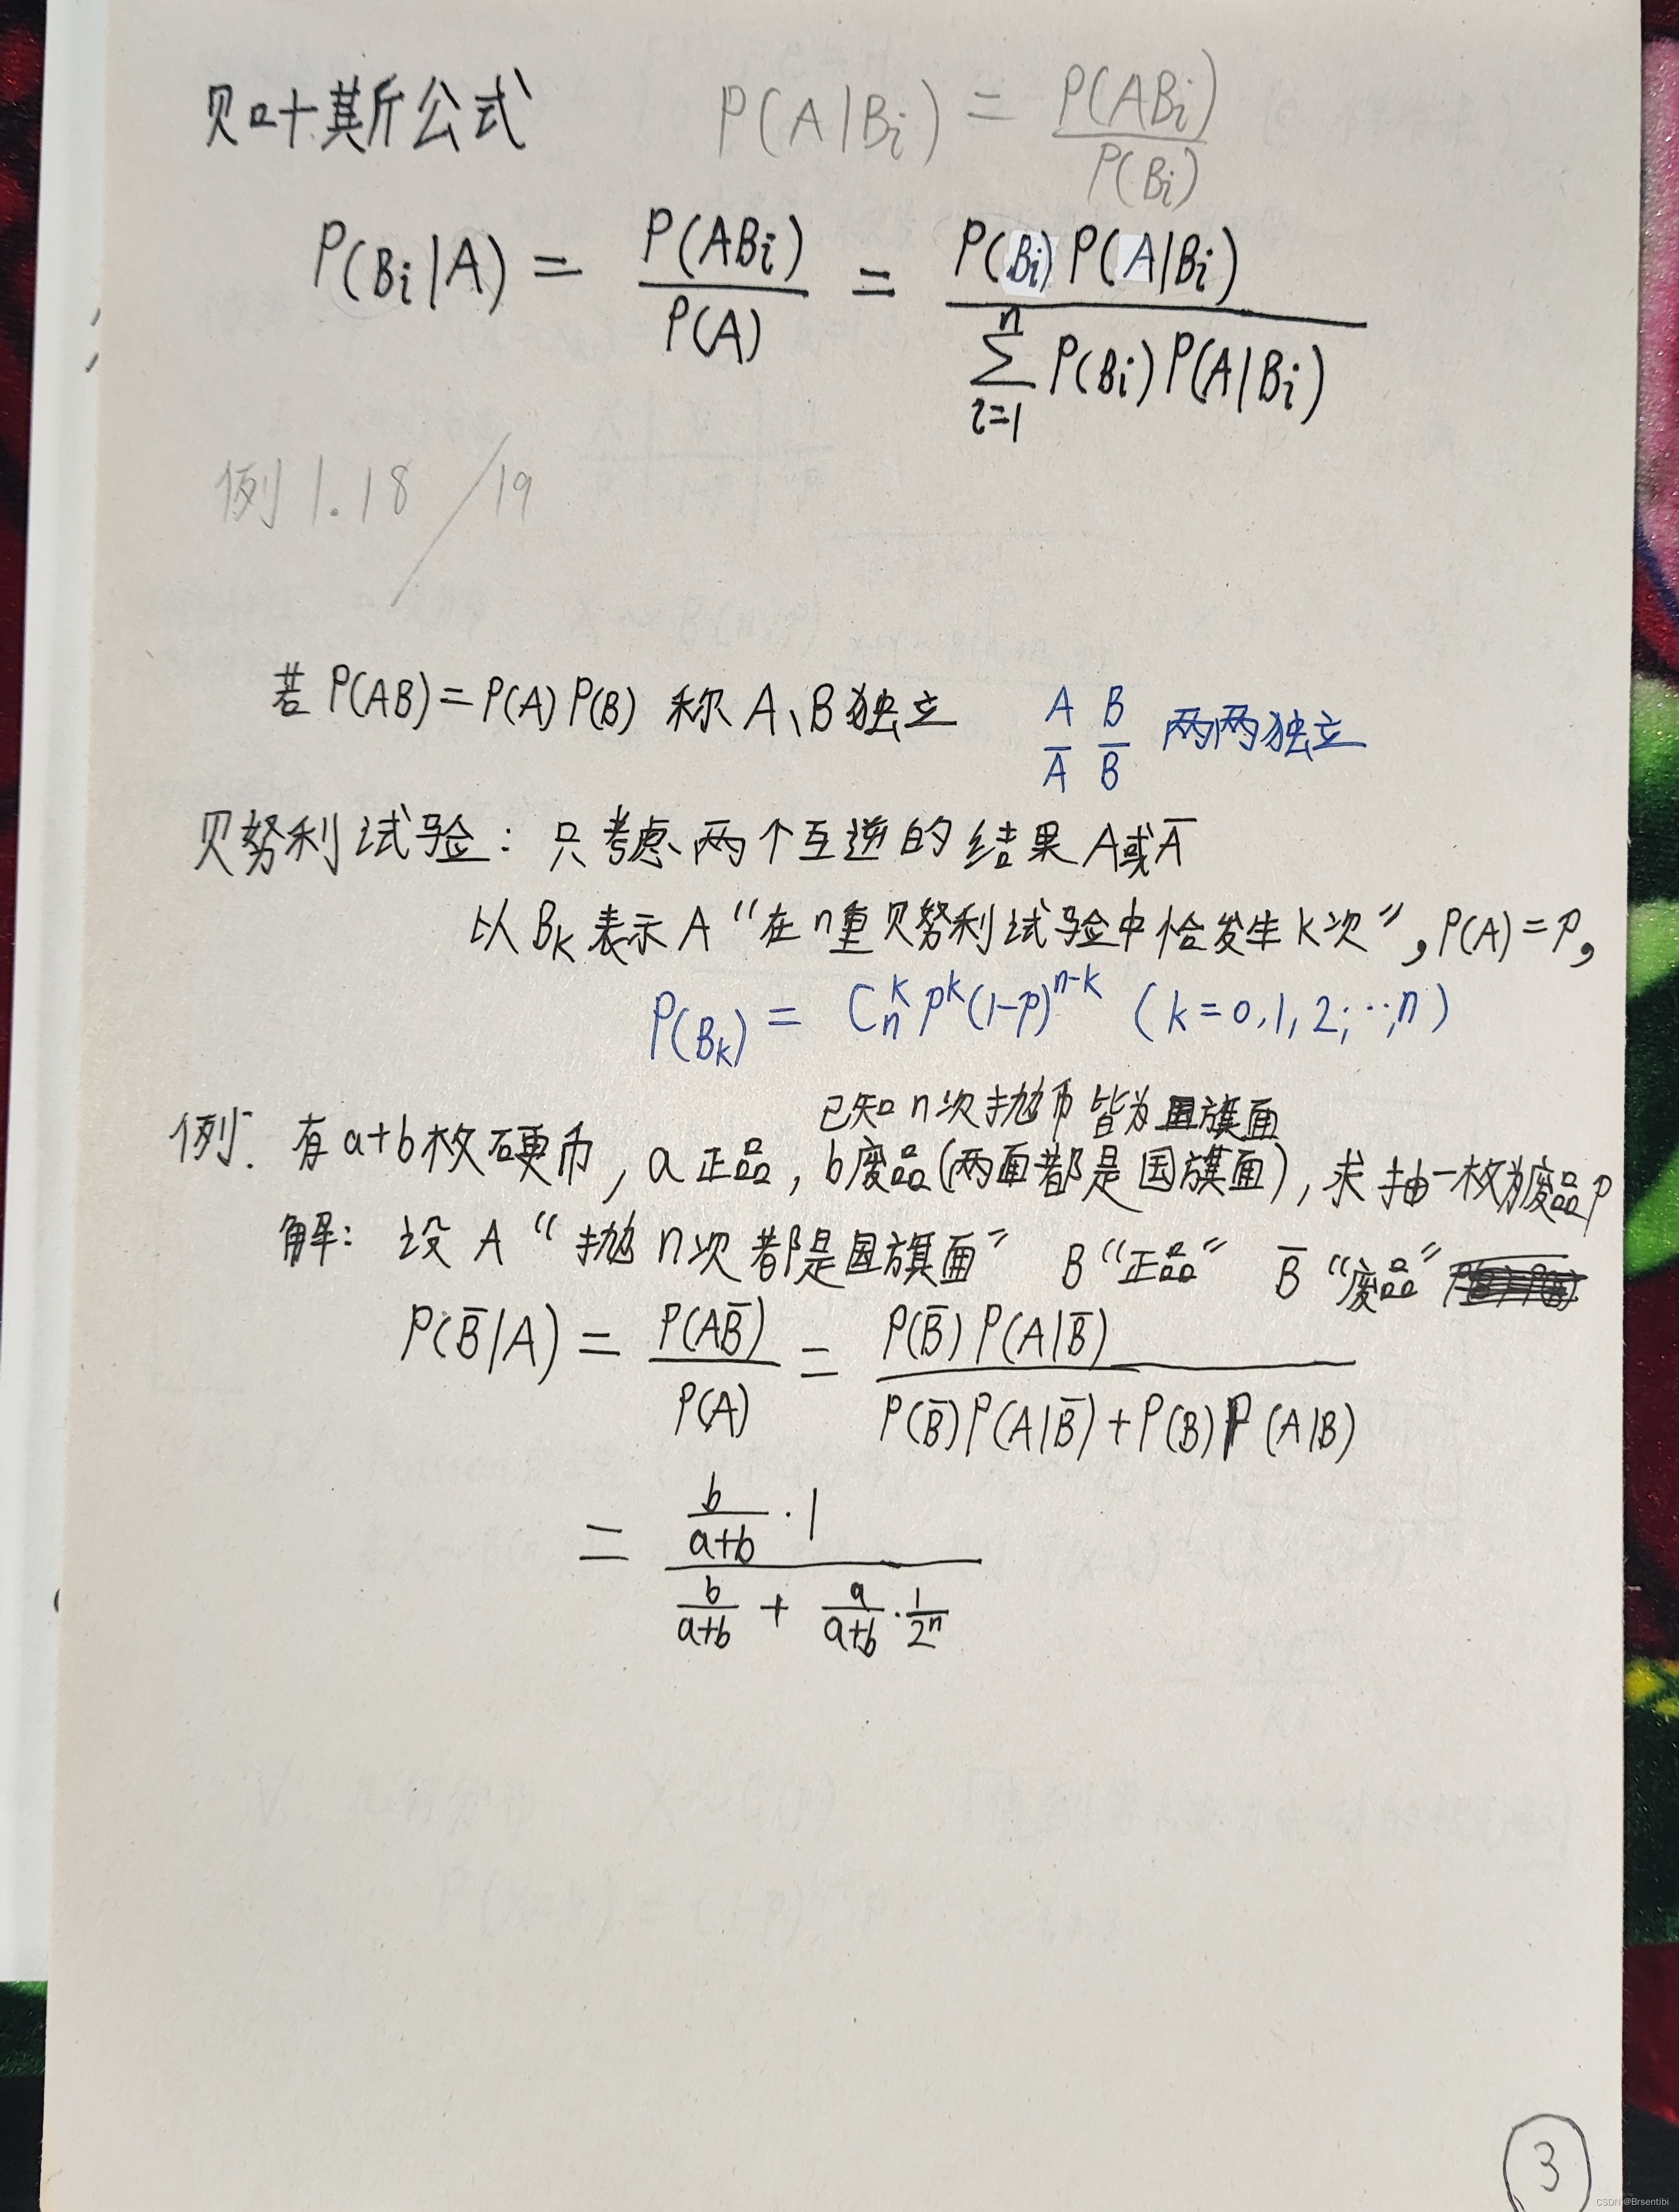 贝叶斯公式 P(A|Bi) = P(ABi)/P(Bi)
P(Bi|A) = P(ABi)/P(A) = P(Bi)P(A|Bi) / ∑_{i=1}^{n} P(Bi)P(A|Bi)
例1.18/19
若P(AB)=P(A)P(B) 称A、B独立 A B A̅ B̅ 两两独立
贝努利试验：只考虑两个互逆的结果A或A̅
以B_K表示A“在n重贝努利试验中恰发生K次”，P(A)=P，
P(B_k) = C_n^k P^k(1-P)^{n-k} (k=0,1,2,…,n)
已知n次抛币皆为国旗面
例：有a+b枚硬币，a正品，b废品(两面都是国旗面)，求抽一枚为废品P
解：设A“抛n次都是国旗面” B“正品” B̅“废品”
P(B̅|A) = P(AB̅)/P(A) = P(B̅)P(A|B̅) / P(B̅)P(A|B̅)+P(B)P(A|B)
= (b/(a+b)·1) / (b/(a+b) + a/(a+b)·1/2^n)
3
CSDN @Brsentibi